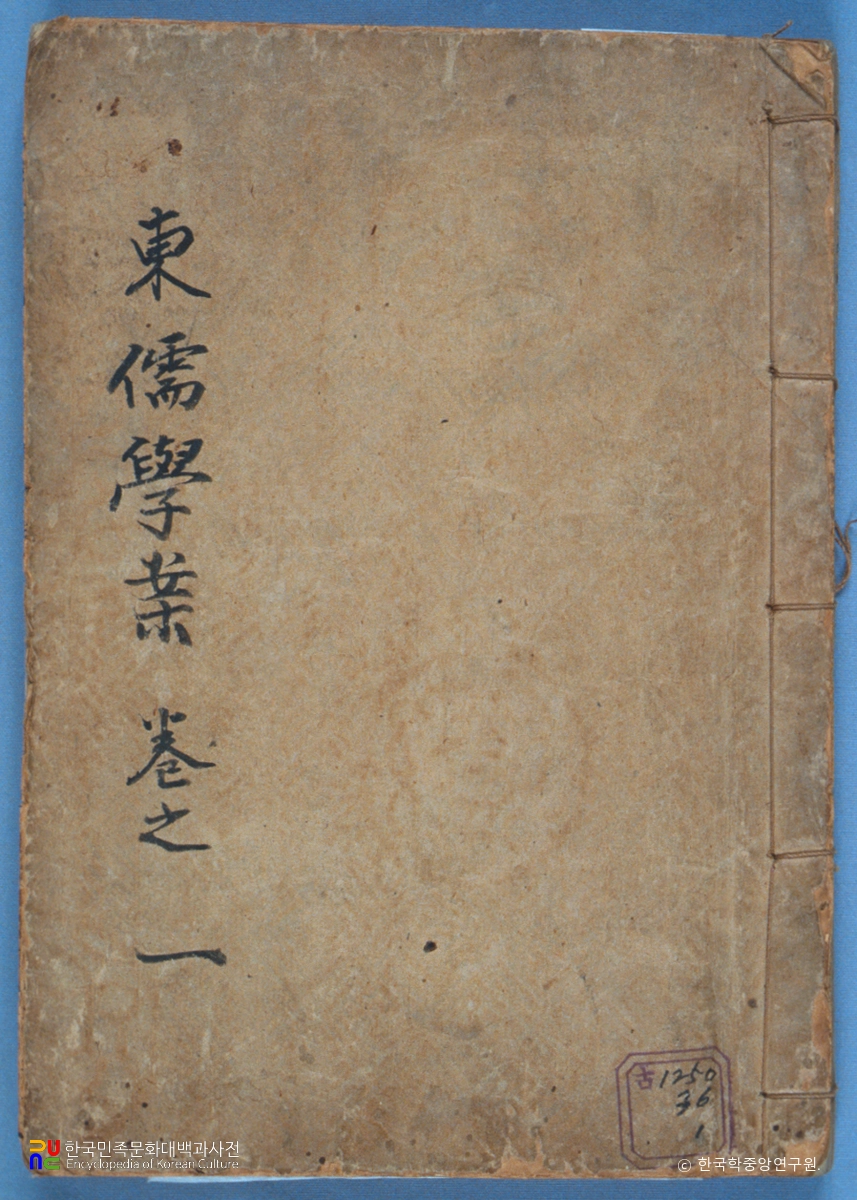 東儒學案 卷之一
古1250
36
1
한국민족문화대백과사전
Encyclopedia of Korean Culture
© 한국학중앙연구원.